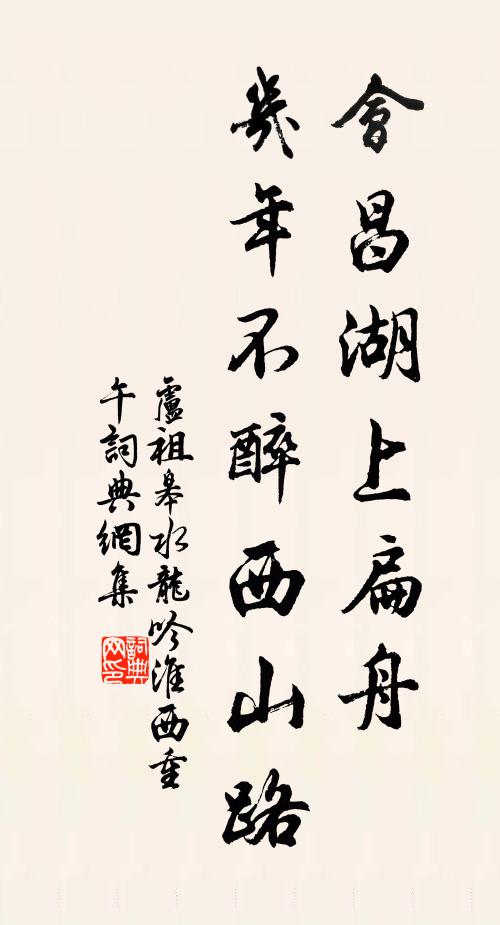 會昌湖上扁舟
幾年不醉西山路
盧祖皋水龍吟淮西重
午詞典網集
詞典网印